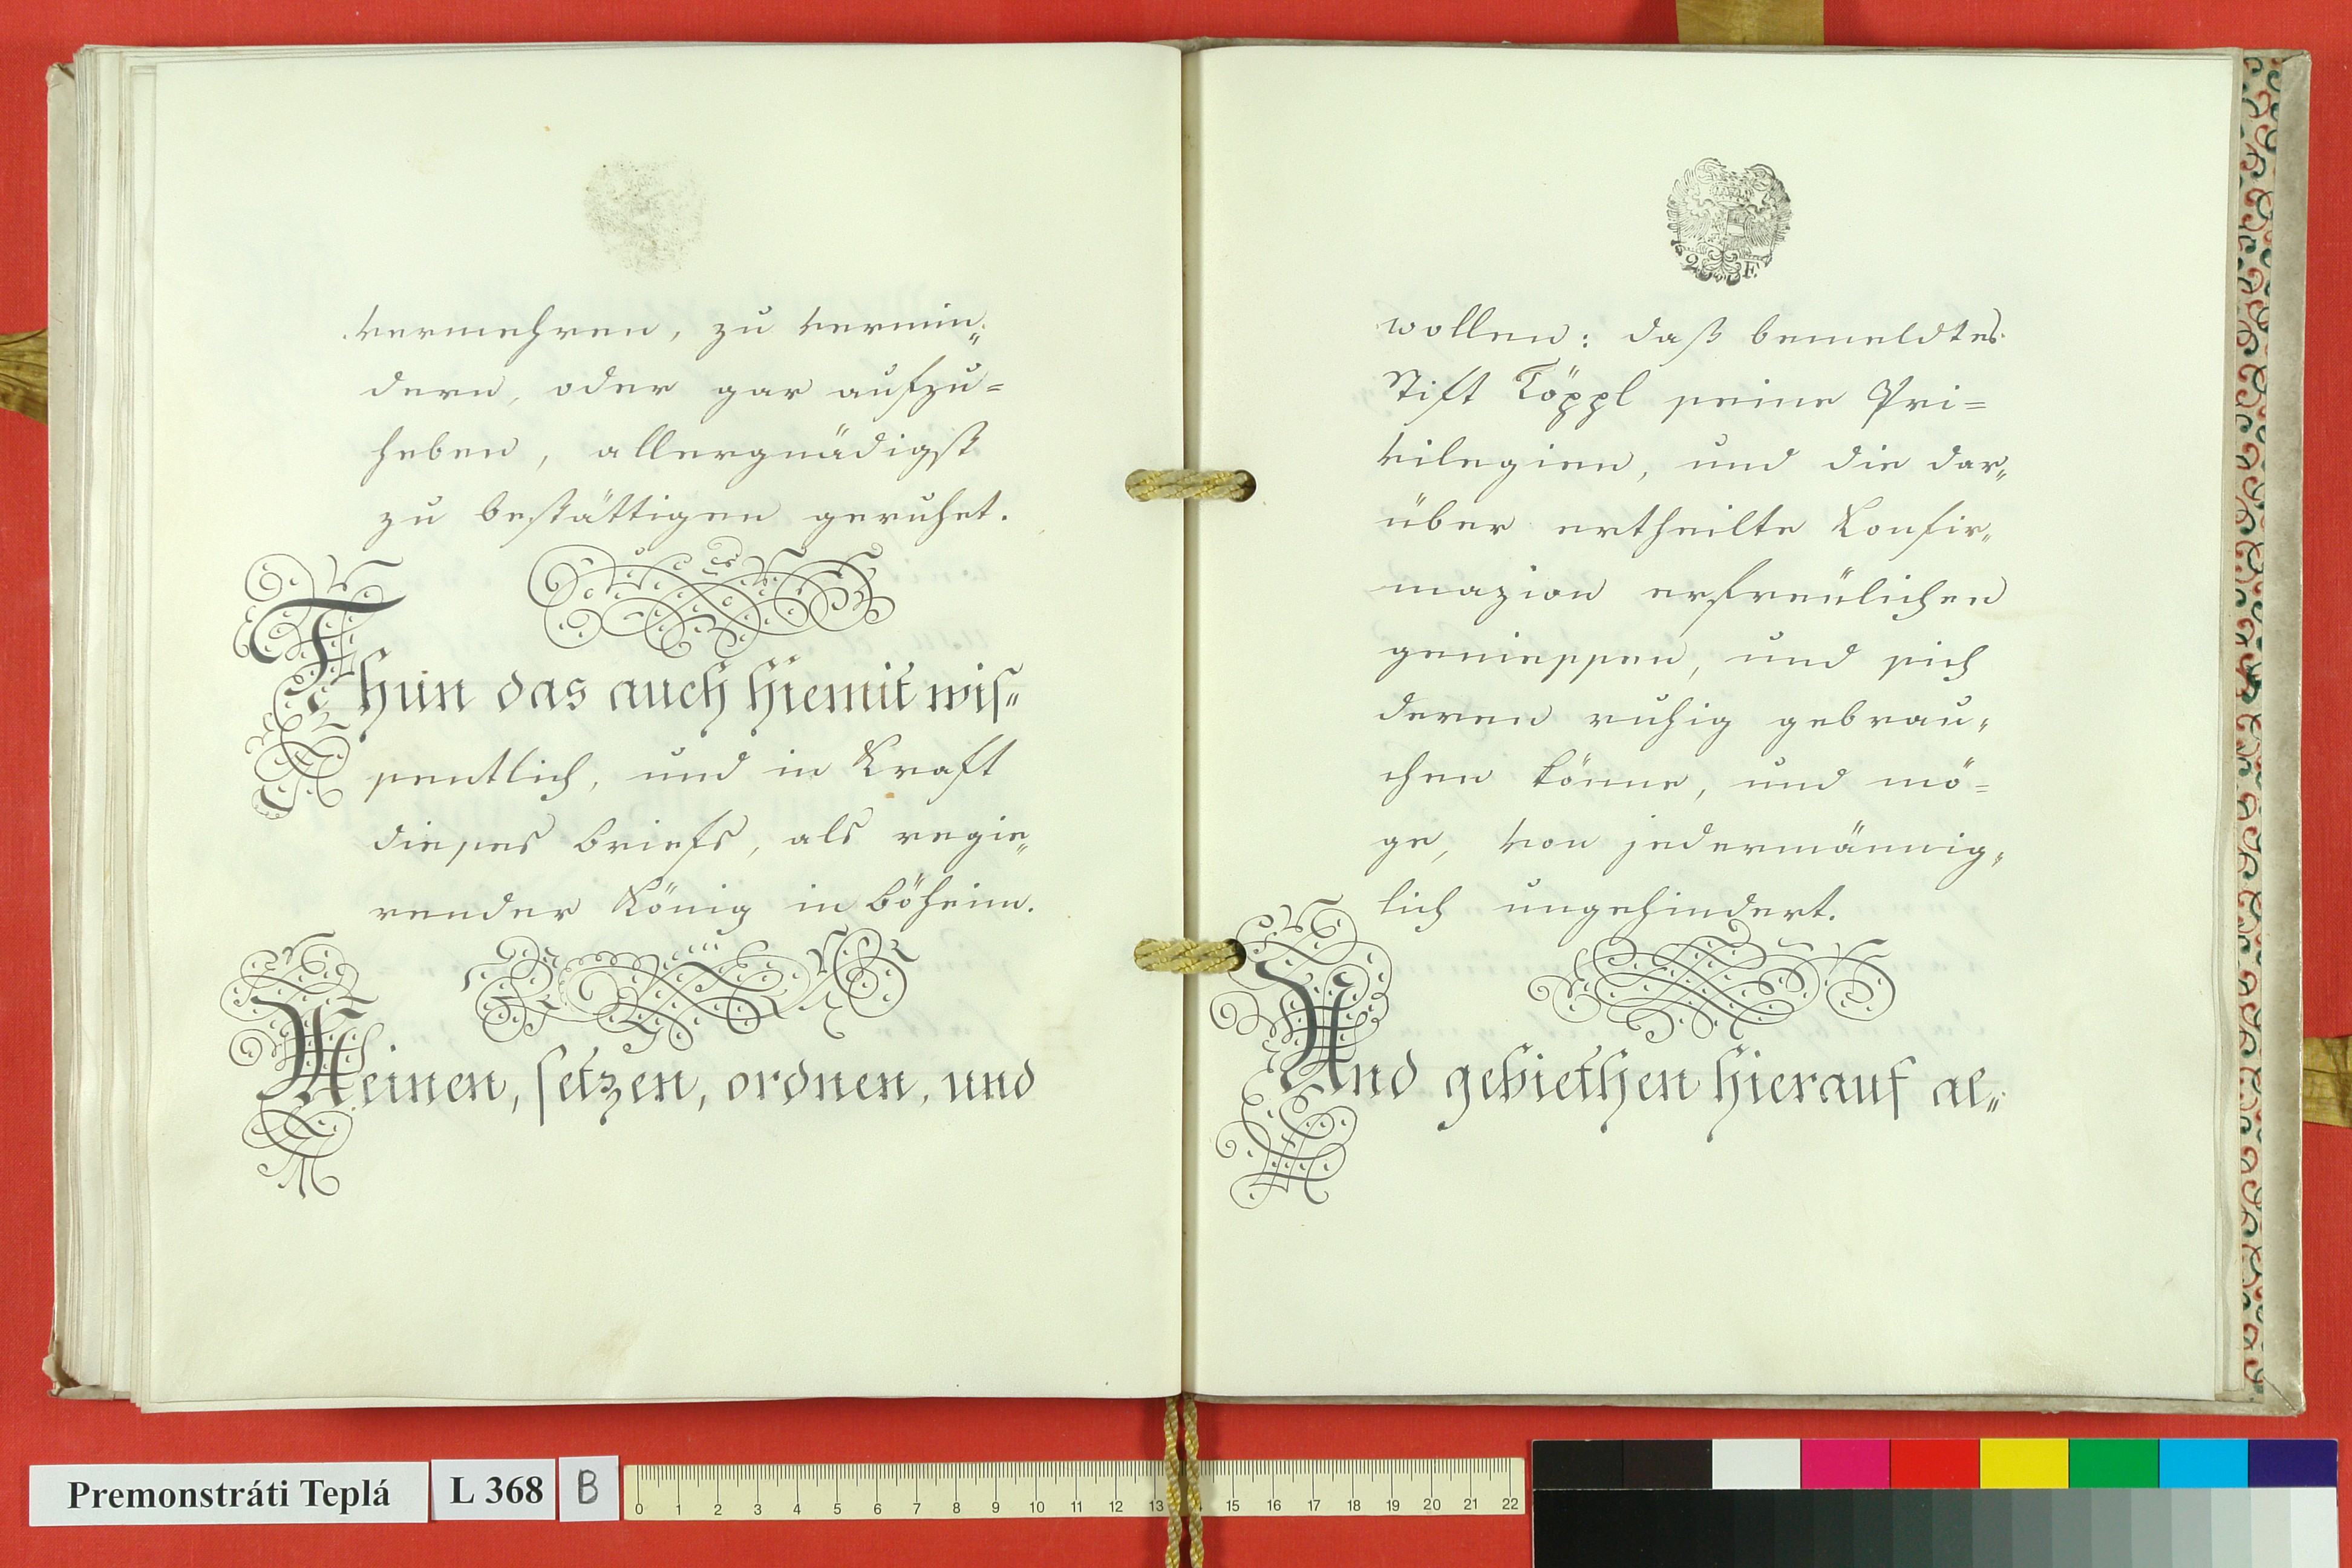 vermehren, zu vermin„
dern, oder gar aufzu=
heben, allergnädigst
zu bestättigen geruhet.
Thun das auch hiemit wis„
sentlich, und in Kraft
dieses briefs, als regie„
render König in böheim.
Meinen, setzen, ordnen, und
2 F.
wollen: daß bemeldtes
Stift Töppl seine Pri=
vilegien, und die dar„
über ertheilte Konfir„
mazion erfreülichen
geniessen, und sich
deren ruhig gebrau„
chen könne, und mö=
ge, von jedermännig„
lich ungehindert.
Und gebiethen hierauf al„
Premonstráti Teplá L 368 B
0 1 2 3 4 5 6 7 8 9 10 11 12 13 15 16 17 18 19 20 21 22